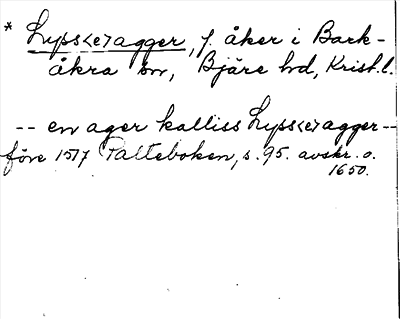 * Lyps<e>agger, f. åker i Bark-
åkra sn, Bjäre hd, Krist.l.
-- en ager kalliss Lyss<e>agger --
före 1517 Palteboken, s. 95. avskr. o.
1650.